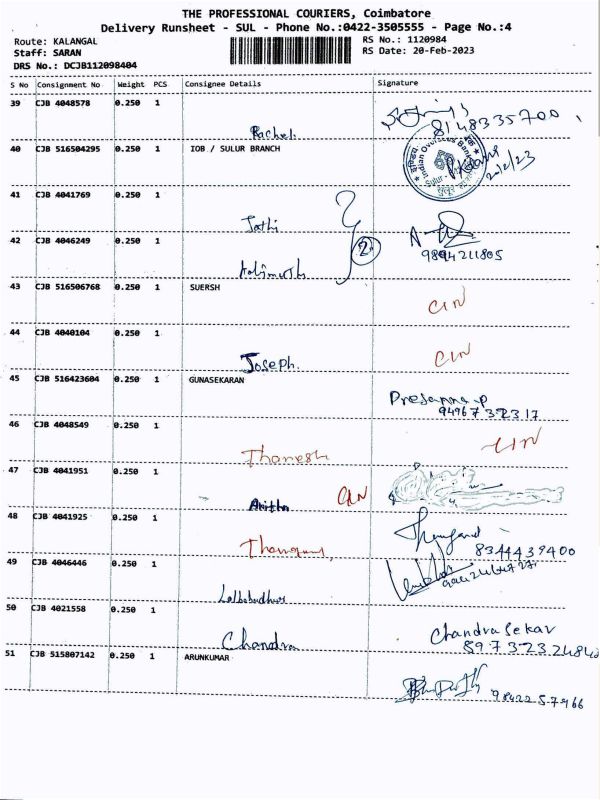 THE PROFESSIONAL COURIERS, Coimbatore
Delivery Runsheet - SUL - Phone No.:0422-3505555 - Page No.:4
Route: KALANGAL
Staff: SARAN
DRS No.: DCJB112098404
RS No.: 1120984
RS Date: 20-Feb-2023
S No Consignment No Weight PCS Consignee Details Signature
39 CJB 4048578 0.250 1
Rachel 8148335700
40 CJB 516504295 0.250 1 IOB / SULUR BRANCH
Indian Overseas Bank
Sulur
20/2/23
41 CJB 4041769 0.250 1
Jothi
42 CJB 4046249 0.250 1
2
9894211805
43 CJB 516506768 0.250 1 SUERSH
CIN
44 CJB 4040104 0.250 1
Joseph. CIN
45 CJB 516423604 0.250 1 GUNASEKARAN
Presanna.P
9496732317
46 CJB 4048549 0.250 1
Thanesh CIN
47 CJB 4041951 0.250 1
CIN
48 CJB 4041925 0.250 1
8344439400
49 CJB 4046446 0.250 1
50 CJB 4021558 0.250 1
Chandra Chandra Sekar
51 CJB 515807142 0.250 1 ARUNKUMAR
9842257966